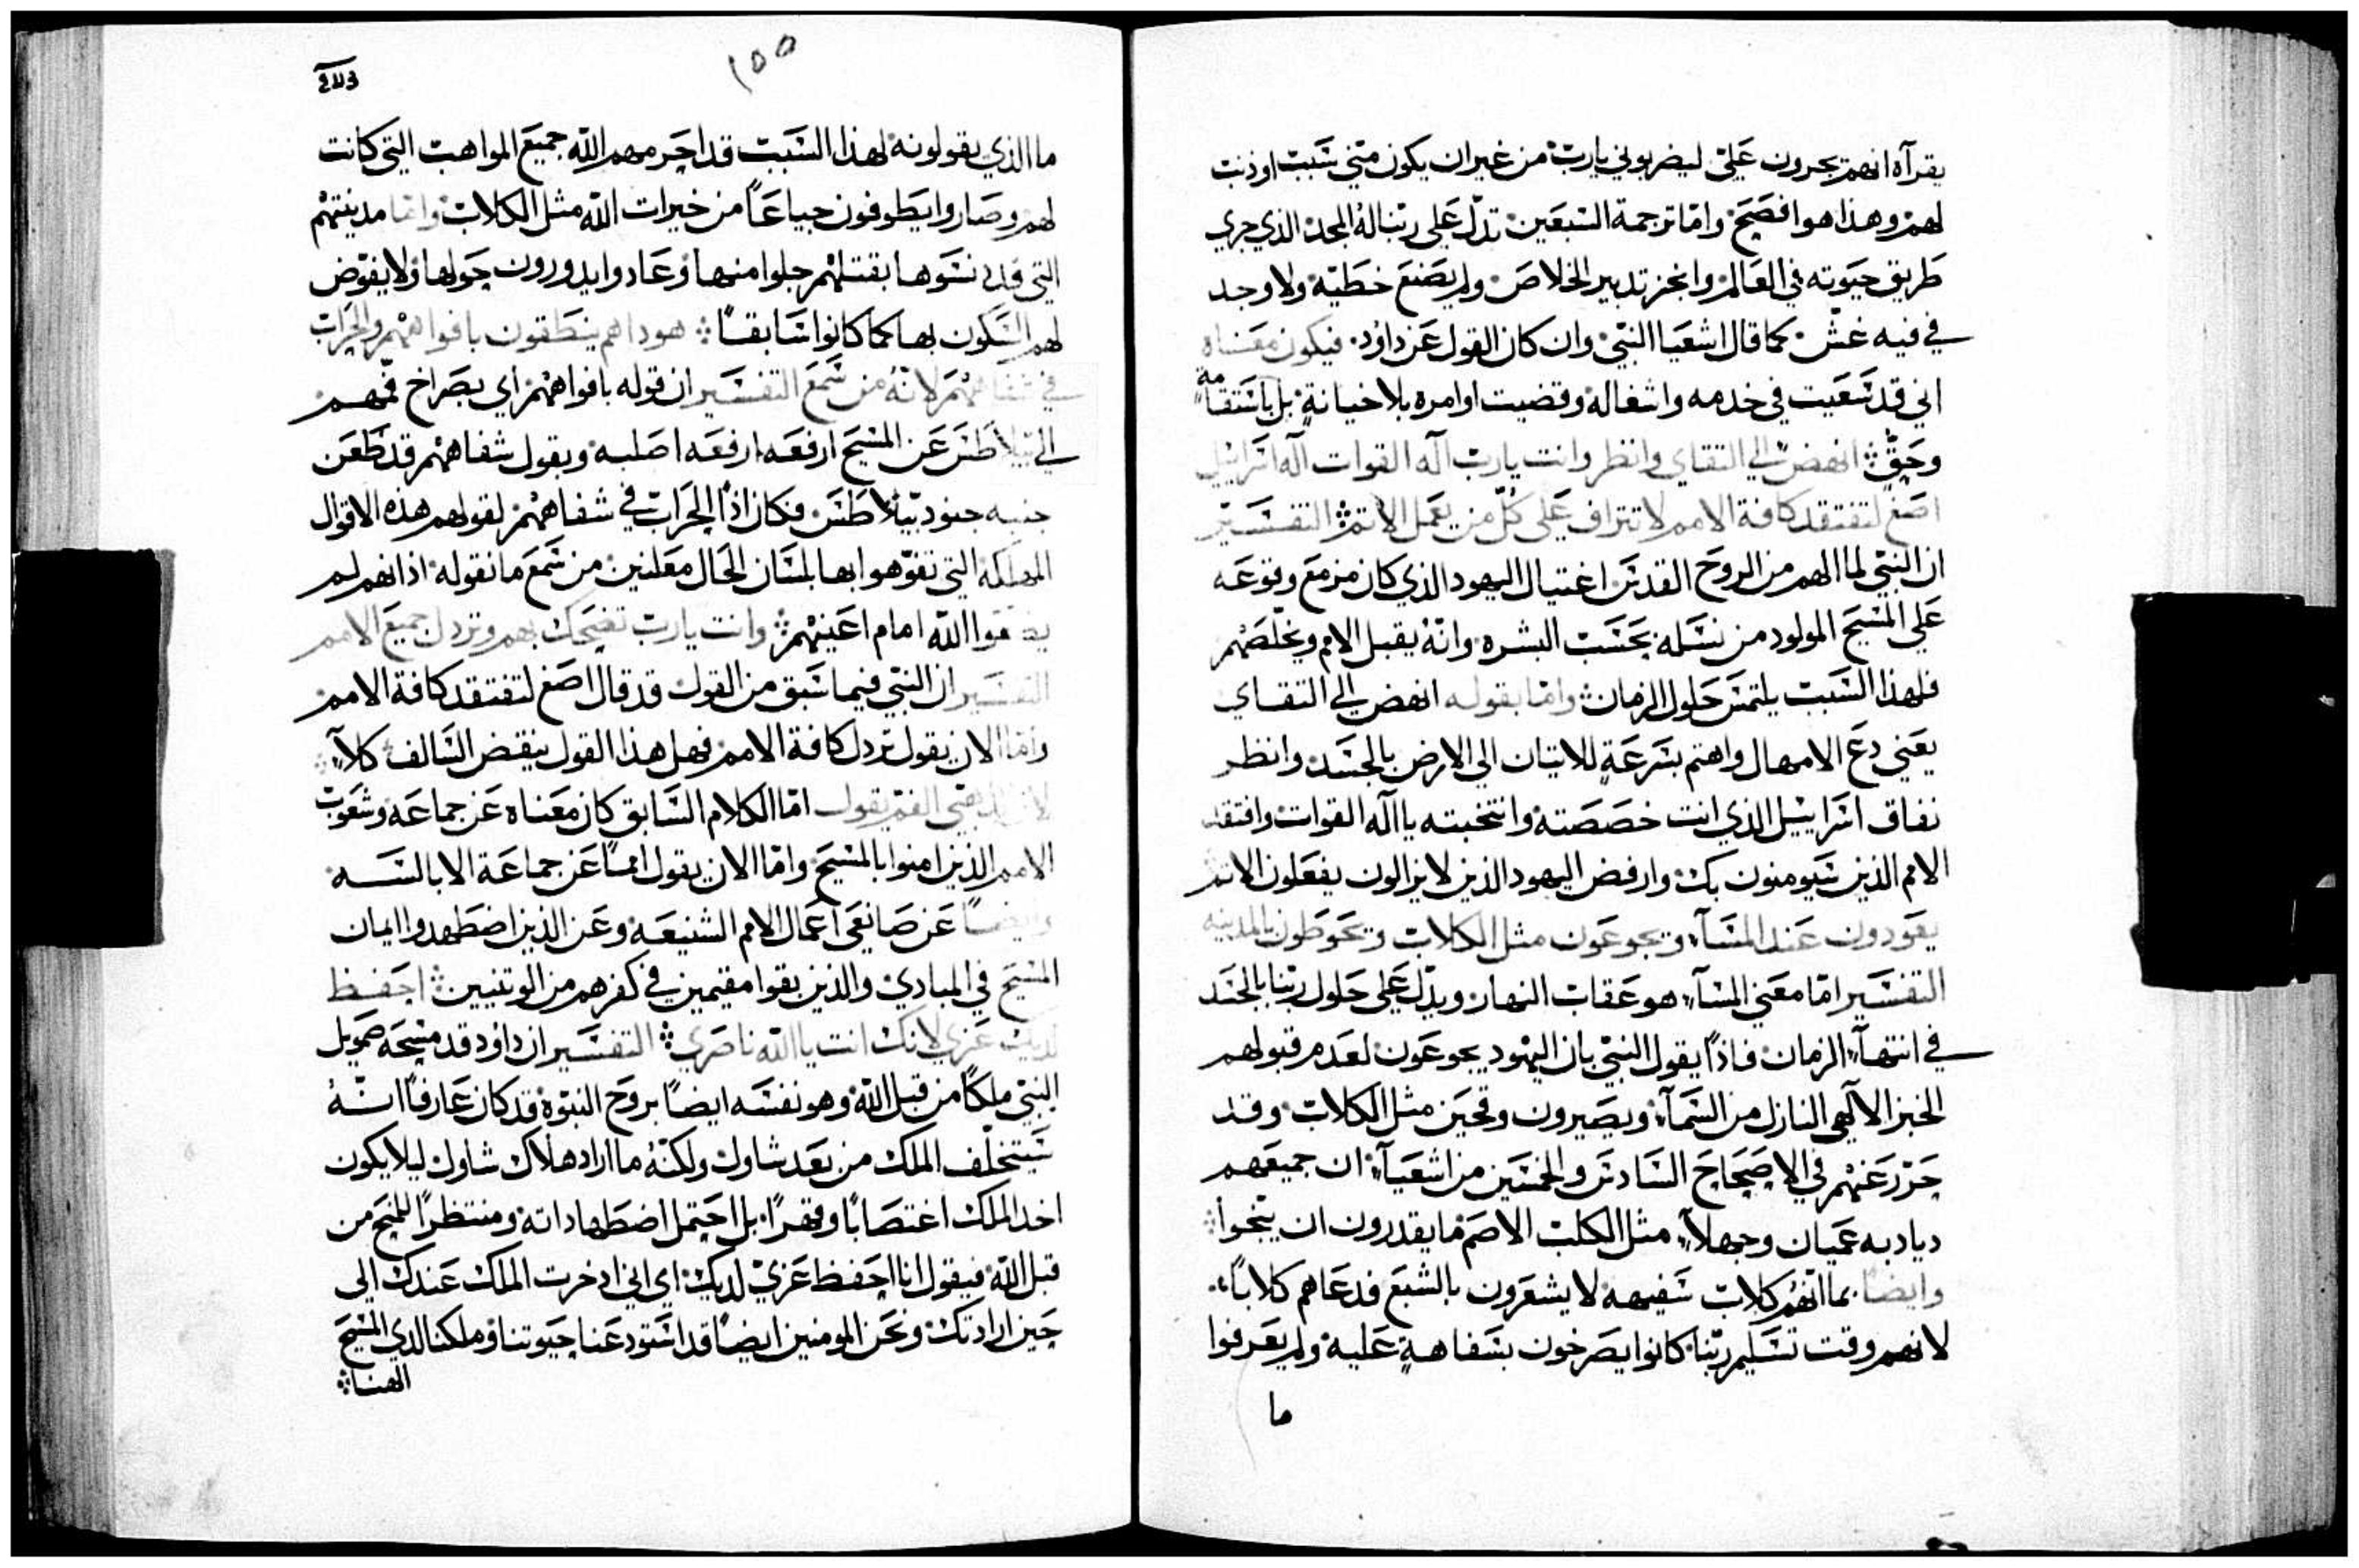 يقرآه انهم يجرون علىّ ليضربوني يارب من غير ان يكون منّي سبب او ذنب
لهم وهذا هو افصح واما ترجمة السبعين تدلّ على ربّنا له المجد الذي جري
طريق حيوته في العالم وانجز تدبير الخلاص ولم يصنع خطيّه ولا وجد
في فيه غش كما قال اشعيا النبي وان كان القول عن داود فيكون معناه
اني قد سعيت في خدمه واشغاله وقضيت اوامره بلا خيانةٍ بل باستقامةٍ
وحقٍّ انهض الي التقاي وانظر وانت يارب آله القوات آله اسراييل
اصغ لتفتقد كافة الامم لا تتراف على كلّ من يعمل الاثم التفسير
ان النبي لما الهم من الروح القدس اغتيال اليهود الذي كان مزمع وقوعه
على المسيح المولود من نسله بحسب البشره وانّه يقبل الامم ويخلّصهم
فلهذا السبب يلتمس حلول الزمان واما بقوله انهض الي التقاي
يعني دع الامهال واهتم بسرعةٍ للاتيان الى الارض بالجسد وانظر
نفاق اسراييل الذي انت خصصته وانتخبته يا اله القوات وافتقد
الامم الذين سيومنون بك وارفض اليهود الذين لا يزالون يفعلون الاثم
يعودون عند المسآء ويجوعون مثل الكلاب ويحوطون بالمدينه
التفسير اما معنى المسآء هو عقاب النهار ويدلّ على حلول ربّنا بالجسد
في انتهآء الزمان فاذاً يقول النبي بان اليهود يجوعون لعدم قبولهم
الخبز الآلهي النازل من السمآء ويصيرون وقحين مثل الكلاب وقد
حرّر عنهم في الاصحاح السادس والخمسين من اشعيآء ان جميعهم
ديادبه عميان وجهلآء مثل الكلب الاصم ما يقدرون ان ينبحوا
وايضاً بما انّهم كلاب سفيهه لا يشعرون بالشبع فدعاهم كلاباً
لانهم وقت تسليم ربّنا كانوا يصرخون بسفاهةٍ عليه ولم يعرفوا
ما
١٥٥
ما الذي يقولونه لهذا السبب قد احرمهم الله جميع المواهب التي كانت
لهم وصاروا يطوفون جياعاً من خيرات الله مثل الكلاب واما مدينتهم
التي قد نسوها بقتلهم جلوا منها وعادوا يدورون حولها ولا يفوّض
لهم السكون بها كما كانوا سابقاً هوداهم ينطقون بافواههم والحراب
في شفاههم لانّه من سمع التفسير ان قوله بافواههم اي بصراخ فمهم
الى بيلاطس عن المسيح ارفعه ارفعه اصلبه ويقول شفاههم قد طعن
جنبه جنود بيلاطس فكان اذاً الحراب في شفاههم لقولهم هذه الاقوال
المهلكه التي تفوّهوا بها بلسان الحال معلنين من سمع ما نقوله اذ انهم لم
يضعوا الله امام اعينهم وانت يارب تضحك بهم وتردل جميع الامم
التفسير ان النبي فيما سبق من القول قد قال اصغ لتفتقد كافة الامم
واما الان يقول تردل كافة الامم فهل هذا القول ينقض السالف كلّاً
لان الذهبي الفم يقول اما الكلام السابق كان معناه عن جماعه وشعوب
الامم الذين امنوا بالمسيح واما الان يقول امماً عن جماعة الابالسه
وايضاً عن صانعي اعمال الامم الشنيعه وعن الذين اضطهدوا ايمان
المسيح في المبادي والذين بقوا مقيمين في كفرهم من الوتنيين احفظ
لديك عزي لانك انت يا الله ناصري التفسير ان داود قد مسحه صمويل
النبي ملكاً من قبل الله وهو نفسه ايضاً بروح النبوّة قد كان عارفاً انّه
سيتخلّف الملك من بعد شاول ولكنّه ما اراد هلاك شاول ليلا يكون
اخد الملك اغتصاباً وقهراً بل احتمل اضطهاداته ومنتظراً للمنح من
قبل الله فيقول انا احفظ عزيّ لديك اي اني ادخرت الملك عندك الى
حين ارادتك ونحن المومنين ايضاً قد استودعنا حيوتنا وملكنا لدي المسيح
الهنا